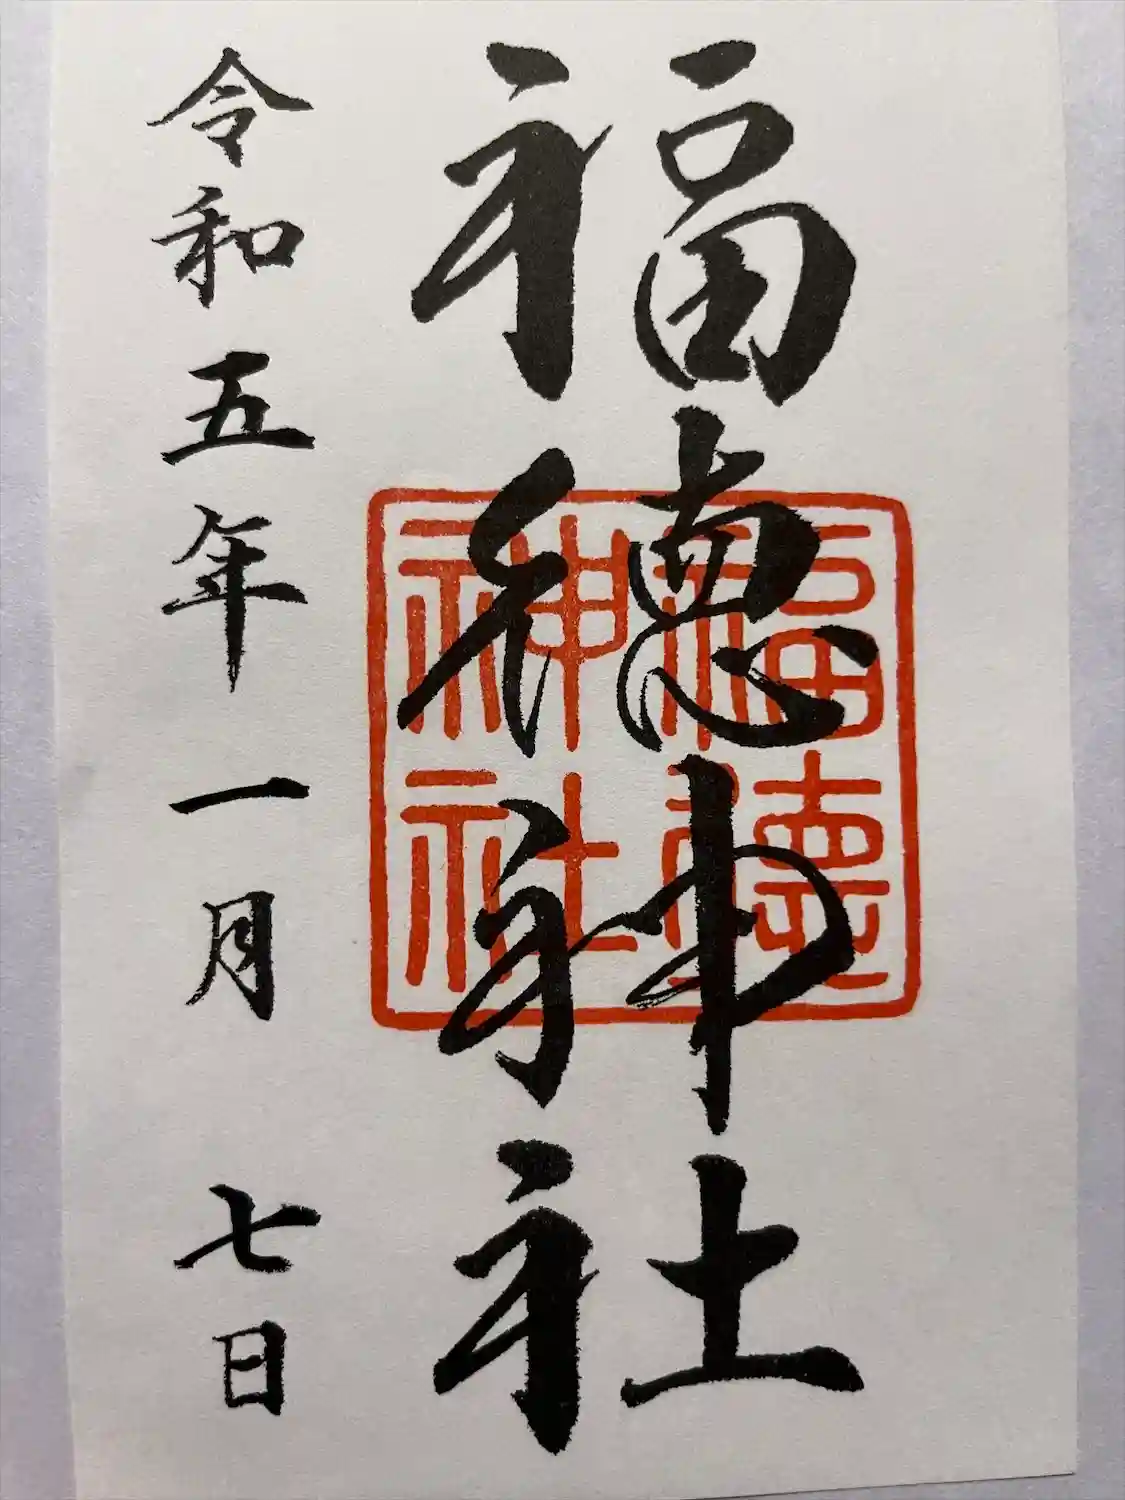 福徳神社
福徳神社
令和五年一月七日